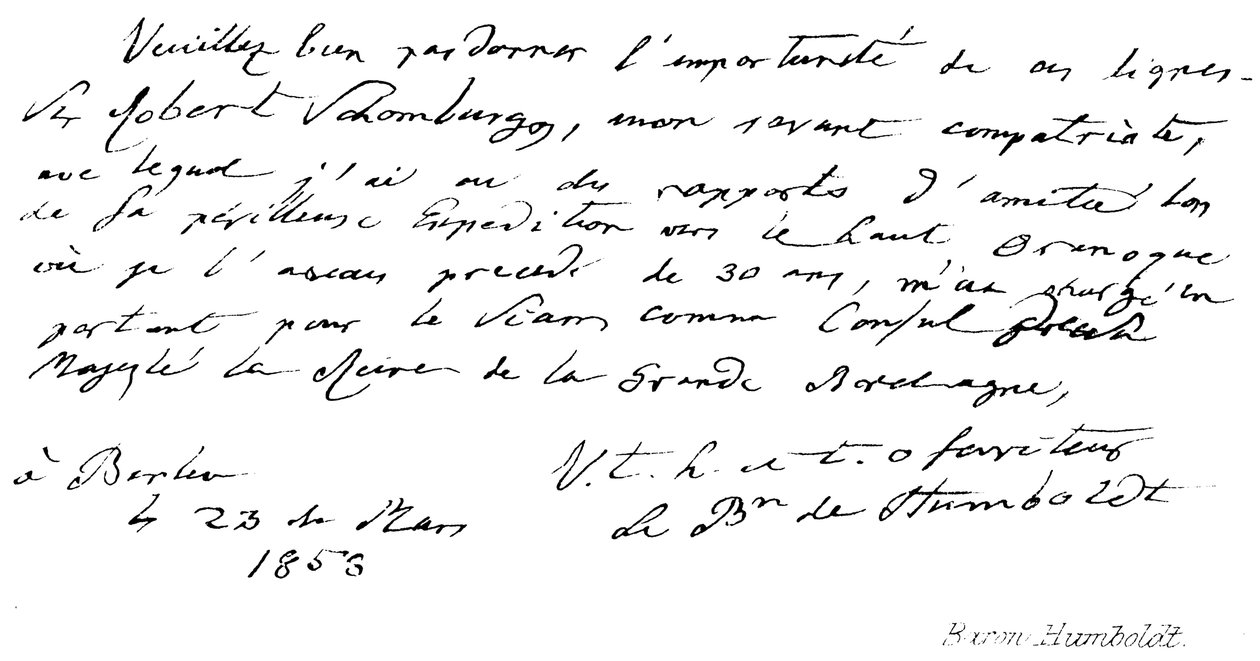 Veuillez bien pardonner l'importunité de ces lignes.
Sir Robert Schomburgk, mon savant compatriote,
avec lequel j'ai eu des rapports d'amitié lors
de sa périlleuse Expedition vers le haut Orenoque
où je l'avais precedé de 30 ans, m'a chargé en
partant pour le Siam comme Consul de Sa
Majesté la Reine de la Grande Bretagne,
à Berlin
le 23 de Mars
1858
V. t. h. et t. o serviteur
Le Bn de Humboldt
Baron Humboldt.